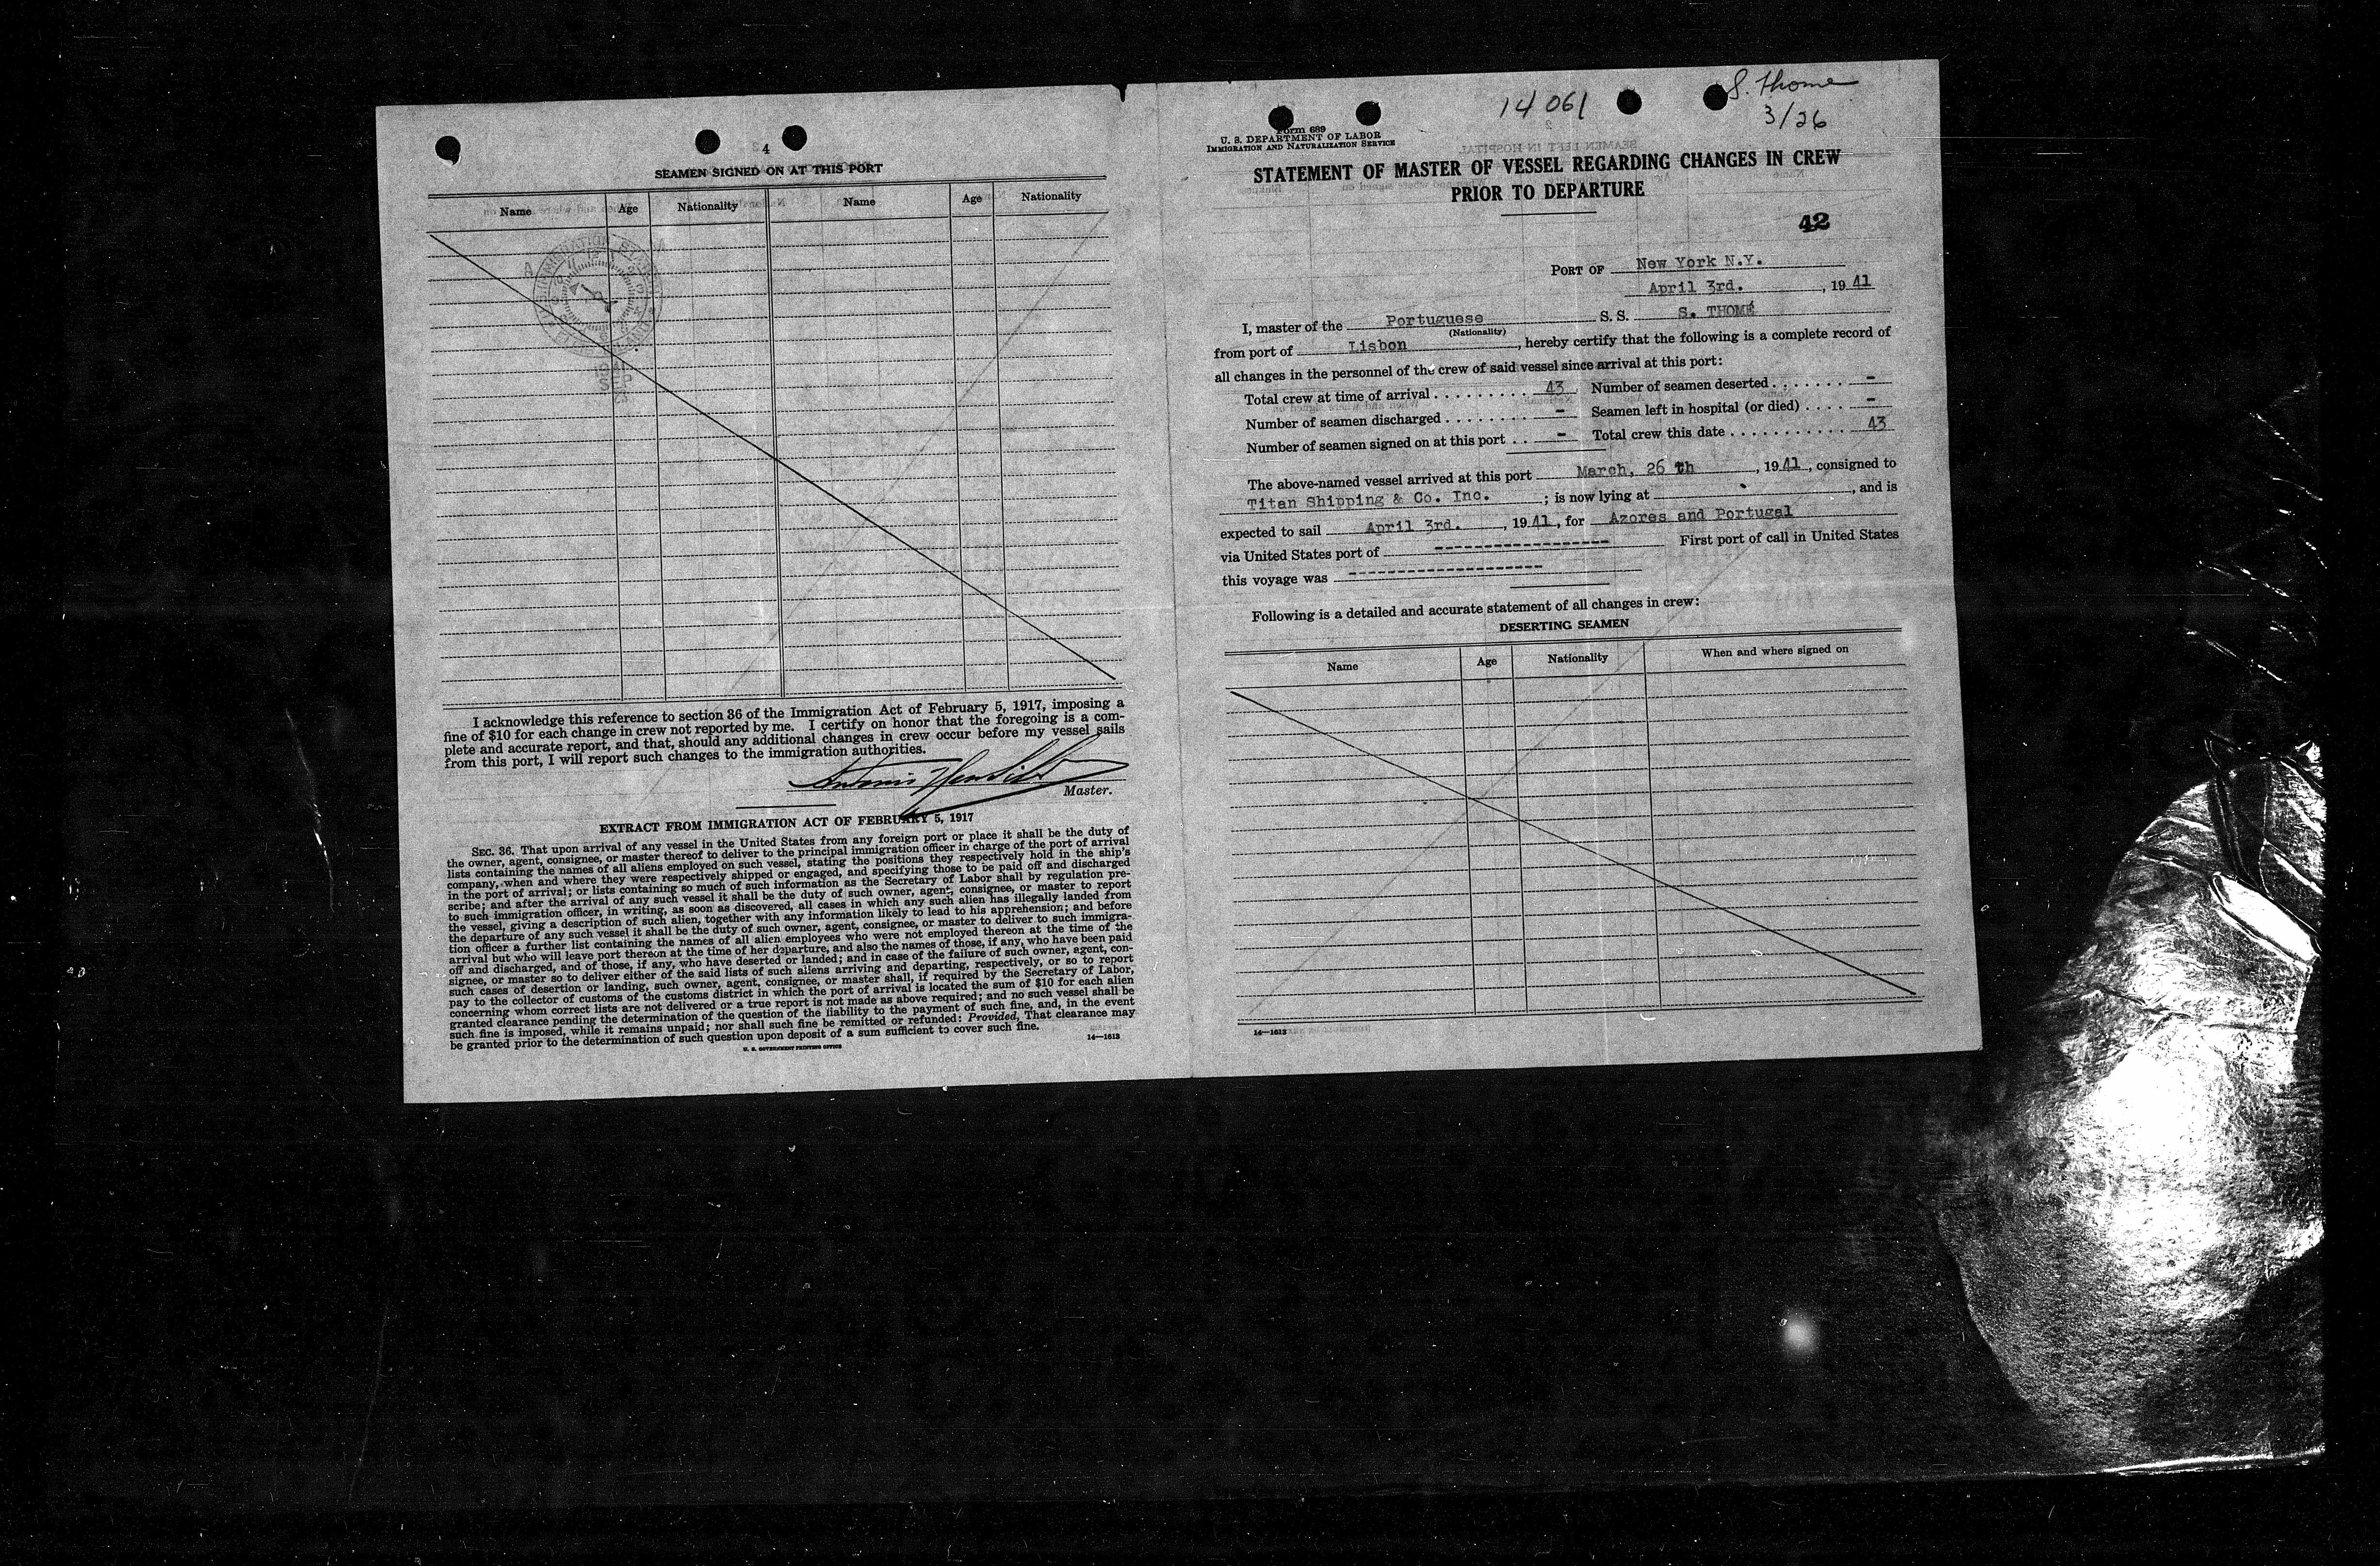 4
SEAMEN SIGNED ON AT THIS PORT
Name Age Nationality Name Age Nationality
I acknowledge this reference to section 36 of the Immigration Act of February 5, 1917, imposing a
fine of $10 for each change in crew not reported by me. I certify on honor that the foregoing is a com-
plete and accurate report, and that, should any additional changes in crew occur before my vessel sails
from this port, I will report such changes to the immigration authorities.
Antonio
Master.
EXTRACT FROM IMMIGRATION ACT OF FEBRUARY 5, 1917
SEC. 36. That upon arrival of any vessel in the United States from any foreign port or place it shall be the duty of
the owner, agent, consignee, or master thereof to deliver to the principal immigration officer in charge of the port of arrival
lists containing the names of all aliens employed on such vessel, stating the positions they respectively hold in the ship's
company, when and where they were respectively shipped or engaged, and specifying those to be paid off and discharged
in the port of arrival; or lists containing so much of such information as the Secretary of Labor shall by regulation pre-
scribe; and after the arrival of any such vessel it shall be the duty of such owner, agent, consignee, or master to report
to such immigration officer, in writing, as soon as discovered, all cases in which any such alien has illegally landed from
the vessel, giving a description of such alien, together with any information likely to lead to his apprehension; and before
the departure of any such vessel it shall be the duty of such owner, agent, consignee, or master to deliver to such immigra-
tion officer a further list containing the names of all alien employees who were not employed thereon at the time of the
arrival but who will leave port thereon at the time of her departure, and also the names of those, if any, who have been paid
off and discharged, and of those, if any, who have deserted or landed; and in case of the failure of such owner, agent, con-
signee, or master so to deliver either of the said lists of such aliens arriving and departing, respectively, or so to report
such cases of desertion or landing, such owner, agent, consignee, or master shall, if required by the Secretary of Labor,
pay to the collector of customs of the customs district in which the port of arrival is located the sum of $10 for each alien
concerning whom correct lists are not delivered or a true report is not made as above required; and no such vessel shall be
granted clearance pending the determination of the question of the liability to the payment of such fine, and, in the event
such fine is imposed, while it remains unpaid; nor shall such fine be remitted or refunded: Provided, That clearance may
be granted prior to the determination of such question upon deposit of a sum sufficient to cover such fine.
U. S. GOVERNMENT PRINTING OFFICE 14—1613
14061
S. Thome
3/26
Form 689
U. S. DEPARTMENT OF LABOR
IMMIGRATION AND NATURALIZATION SERVICE
STATEMENT OF MASTER OF VESSEL REGARDING CHANGES IN CREW
PRIOR TO DEPARTURE
42
PORT OF New York N.Y.
April 3rd. , 19 41
I, master of the Portuguese S. S. S. THOMÉ
(Nationality)
from port of Lisbon , hereby certify that the following is a complete record of
all changes in the personnel of the crew of said vessel since arrival at this port:
Total crew at time of arrival . . . . . . . . . . 43 Number of seamen deserted . . . . . . . -
Number of seamen discharged . . . . . . . - Seamen left in hospital (or died) . . . . -
Number of seamen signed on at this port . . - Total crew this date . . . . . . . . . . . . 43
The above-named vessel arrived at this port March, 26 th , 19 41 , consigned to
Titan Shipping & Co. Inc. ; is now lying at , and is
expected to sail April 3rd. , 19 41 , for Azores and Portugal
via United States port of ------------------- First port of call in United States
this voyage was ---------------------
Following is a detailed and accurate statement of all changes in crew:
DESERTING SEAMEN
Name Age Nationality When and where signed on
14—1613